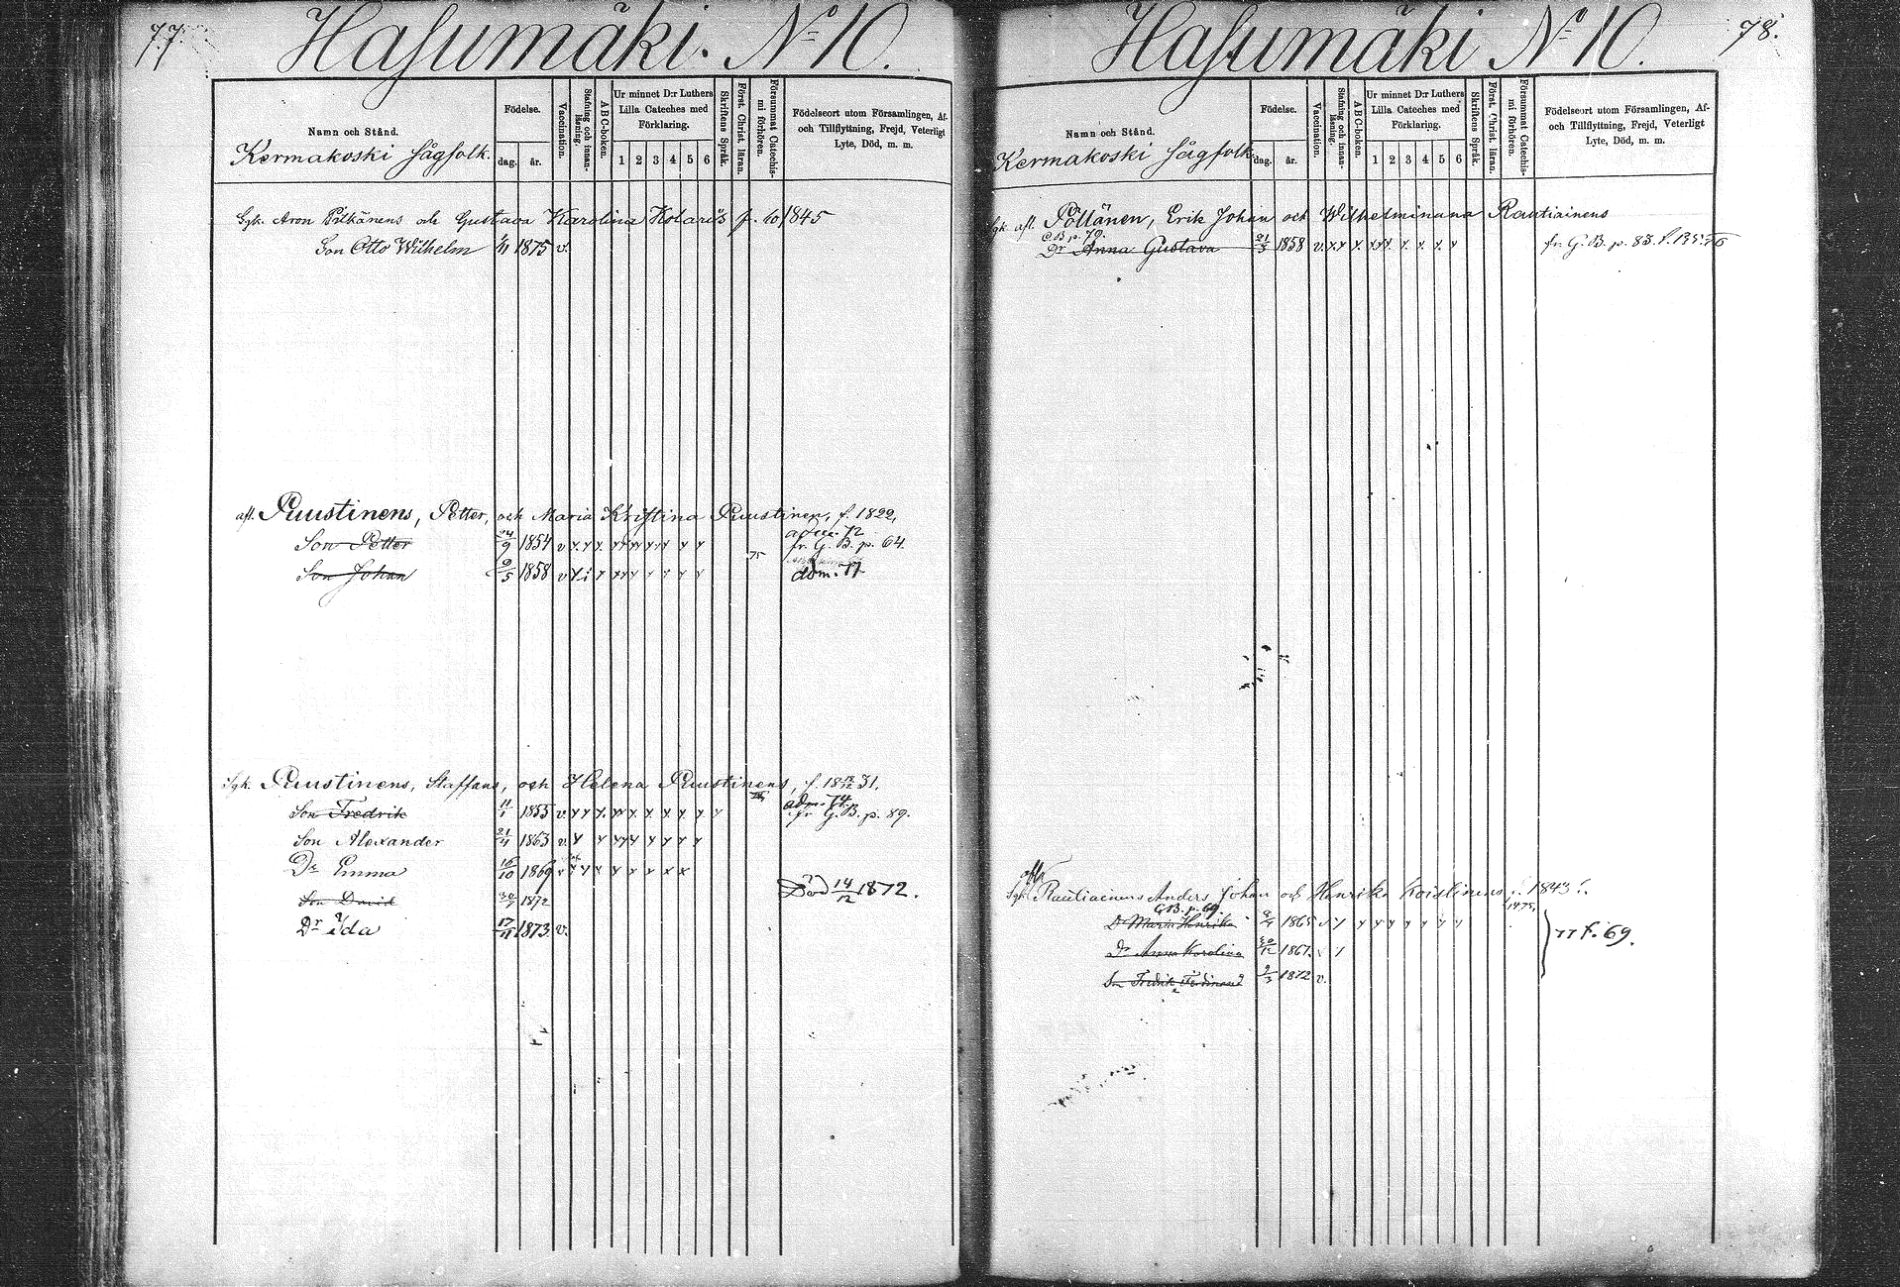 77.
Hasumäki. No 10.
Namn och Stånd.
Födelse.
dag. år.
Vaccination.
Stafning och innan-läsning.
ABC-boken.
Ur minnet D:r Luthers
Lilla Cateches med
Förklaring.
1 2 3 4 5 6
Skriftens Språk.
Först. Christ. läran.
Försummat Catechis-mi förhören.
Födelseort utom Församlingen, Af-
och Tillflyttning, Frejd, Veterligt
Lyte, Död, m. m.
Kermakoski sågfolk.
Sgk. Aron Pitkänens och Gustava Karolina Kolari's f. 10/1845
Son Otto Wilhelm 1875 v.
afl. Puustinens, Petter, och Maria Kristina Puustinen, f. 1822,
adm. 72
Son Petter 24/9 1854 v fr. G. B. p. 64.
Son Johan 9/5 1858 v 75 adm. 77
Sgk. Puustinens, Staffans, och Helena Puustinens, f. 18 31.
adm. 74.
Son Fredrik 11/1 1855 v. fr G. B. p. 89.
Son Alexander 21/4 1863 v.
Dr Emma 16/10 1869 v
Son David 30/7 1872 Död 14/12 1872.
Dr Ida 17/11 1873. v.
78.
Hasumäki No 10.
Namn och Stånd.
Födelse.
dag. år.
Vaccination.
Stafning och innan-läsning.
ABC-boken.
Ur minnet D:r Luthers
Lilla Cateches med
Förklaring.
1 2 3 4 5 6
Skriftens Språk.
Först. Christ. läran.
Försummat Catechis-mi förhören.
Födelseort utom Församlingen, Af-
och Tillflyttning, Frejd, Veterligt
Lyte, Död, m. m.
Kermakoski sågfolk.
Sgk afl. Pöllänen, Erik Johan och Wilhelminana Rautiainens
C B p. 79.
Dr Anna Gustava 21/5 1858 v. fr. G. B. p. 83.
afl.
Sgk. Rautiainens Anders Johan och Henrika Koistinens f. 1843
C B. p. 69
Dr Maria Henrika 1865 v
Dr Anna Karolina 1867. 77 f. 69.
Son Fredrik Ferdinand 9/3 1872 v.